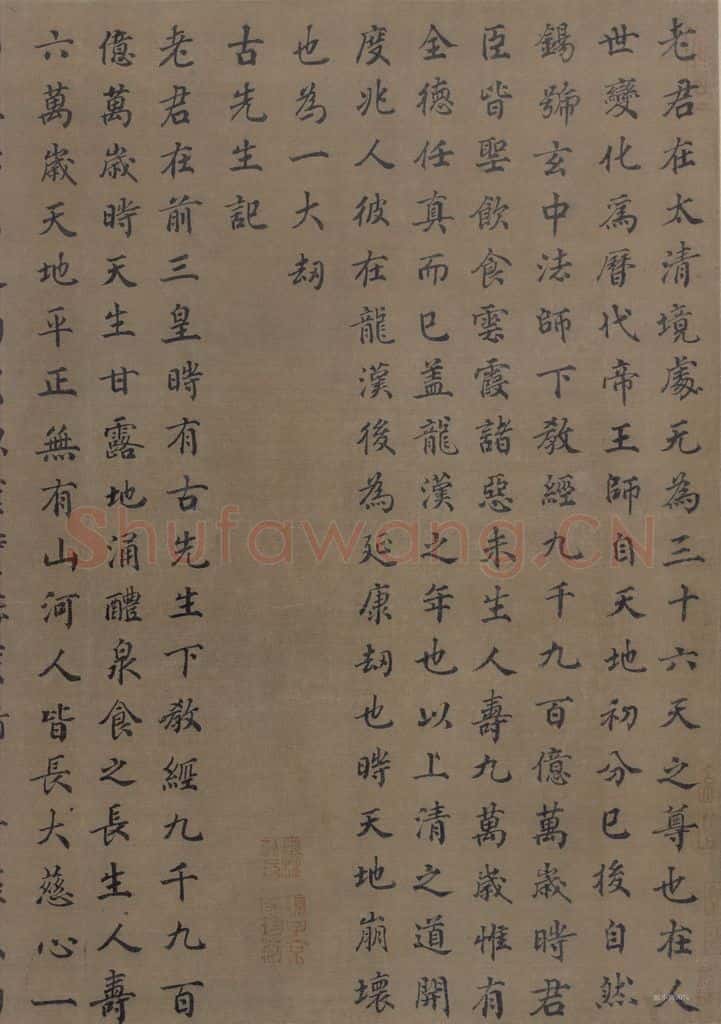 老君在太清境處无為三十六天之尊也在人
世變化爲曆代帝王師自天地初分已後自然
錫號玄中法師下教經九千九百億萬歲時君
臣皆聖飲食雲霞諸惡未生人壽九萬歲惟有
全德任真而已盖龍漢之年也以上清之道開
度兆人彼在龍漢後為延康劫也時天地崩壞
也為一大劫
古先生記
老君在前三皇時有古先生下教經九千九百
億萬歲時天生甘露地涌醴泉食之長生人壽
六萬歲天地平正無有山河人皆長大慈心一
Shufawang.CN